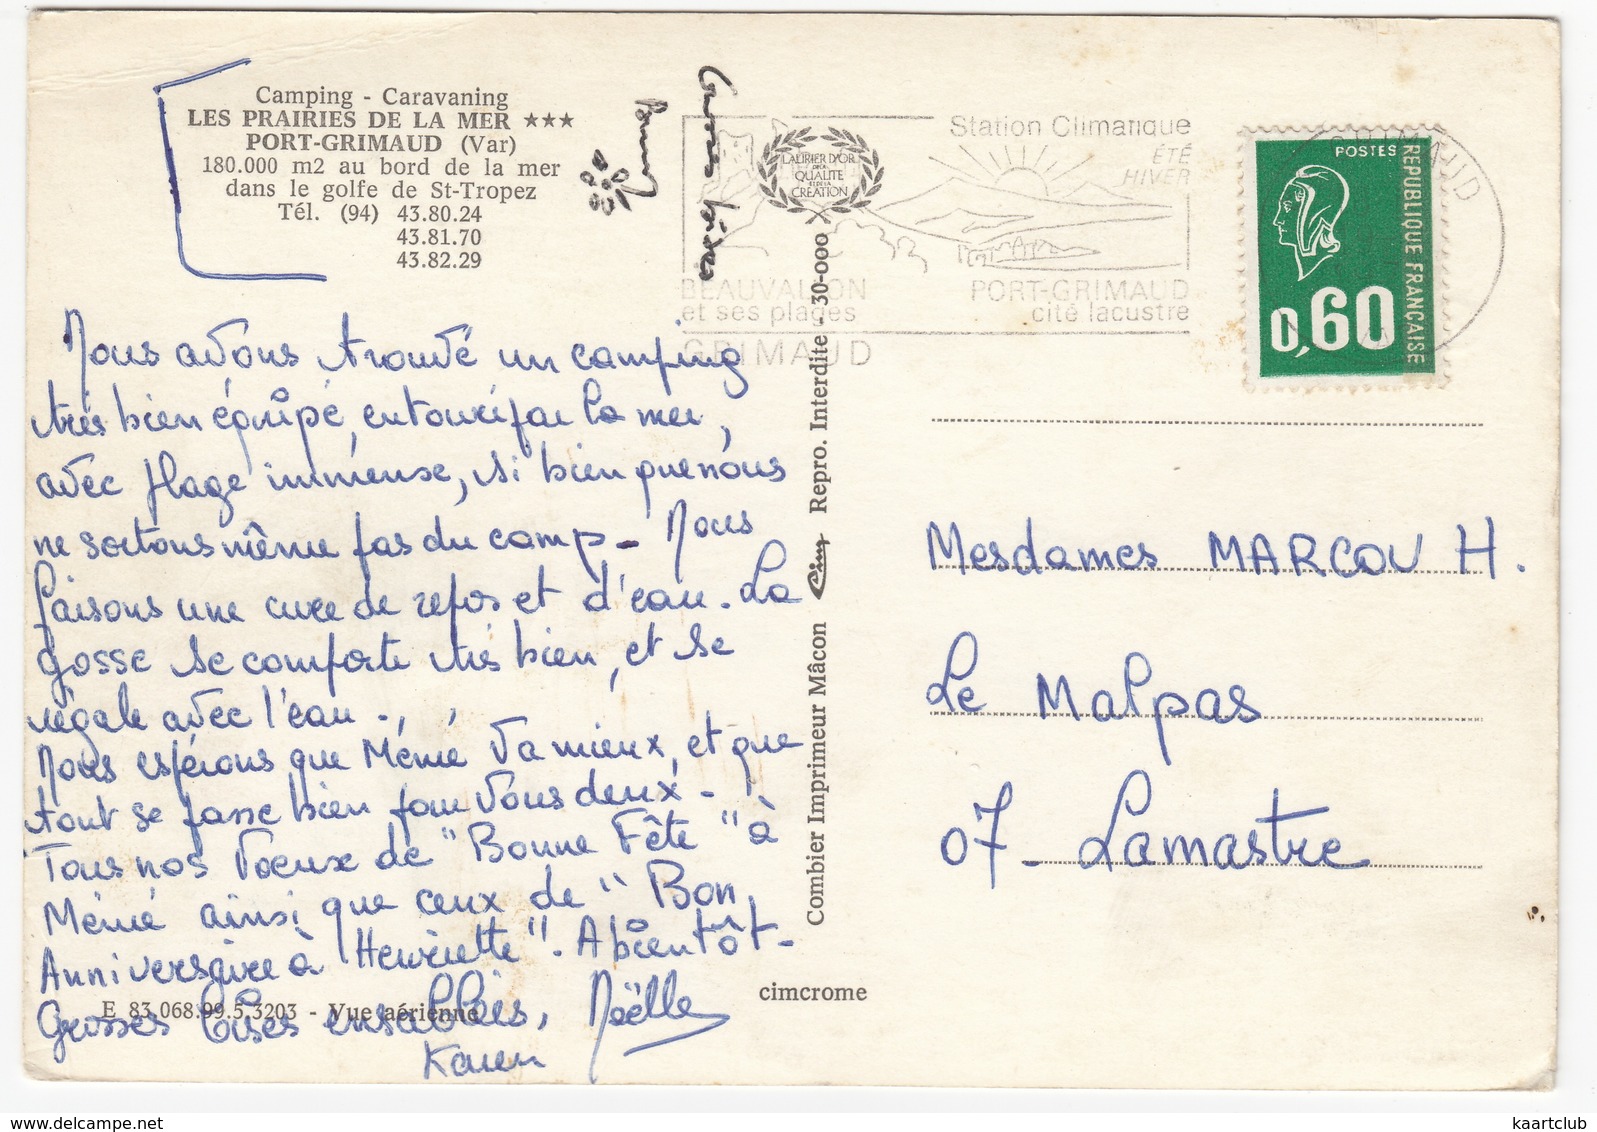 Camping - Caravaning
LES PRAIRIES DE LA MER ★★★
PORT-GRIMAUD (Var)
180.000 m2 au bord de la mer
dans le golfe de St-Tropez
Tél. (94) 43.80.24
43.81.70
43.82.29
Nous avons trouvé un camping
très bien équipé, entouré par la mer,
avec plage immense, si bien que nous
ne sortons même pas du camp - Nous
faisons une cure de repos et d'eau. La
gosse se comporte très bien, et se
régale avec l'eau.
Nous espérons que Mémé va mieux, et que
tout se passe bien pour vous deux -
Tous nos voeux de "Bonne Fête" à
Mémé ainsi que ceux de "Bon
Anniversaire à Henriette". A bientôt -
Grosses bises ensablées, Noëlle
Karen
E 83.068.99.5.3203 - Vue aérienne
cimcrome
Grosses bises
Combier Imprimeur Mâcon Cim Repro. Interdite - 30-000
LAURIER D'OR
DE LA
QUALITÉ
ET DE LA
CRÉATION
Station Climatique
ÉTÉ
HIVER
BEAUVALLON
et ses plages
PORT-GRIMAUD
cité lacustre
GRIMAUD
GRIMAUD
POSTES
REPUBLIQUE FRANCAISE
0,60
Mesdames MARCOU H.
Le Malpas
07 - Lamastre
kaartclub
https://www.delcampe.net